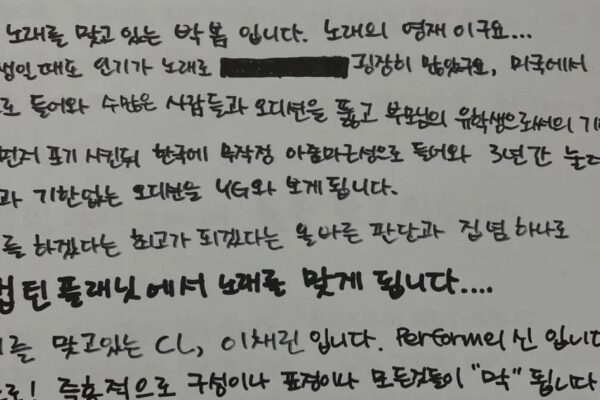 노래를 맞고 있는 박 봄 입니다. 노래의 영재 이구요...
생일 때도 인기가 노래로 굉장히 많았구요, 미국에서
로 들어와 수많은 사람들과 오디션을 뚫고 부모님의 유학생으로써의 기
먼저 포기 시킨뒤 한국에 무작정 아줌마근성으로 들어와 3년간 눌러
과 기한없는 오디션을 YG와 보게 됩니다.
를 하겠다는 최고가 되겠다는 올아른 판단과 집념 하나로
플래닛에서 노래를 맞게 됩니다....
를 맞고있는 CL, 이채린 입니다. Perform의 신 입니다
로! 즉흥적으로 구성이나 표정이나 모든것들이 "막" 됩니다